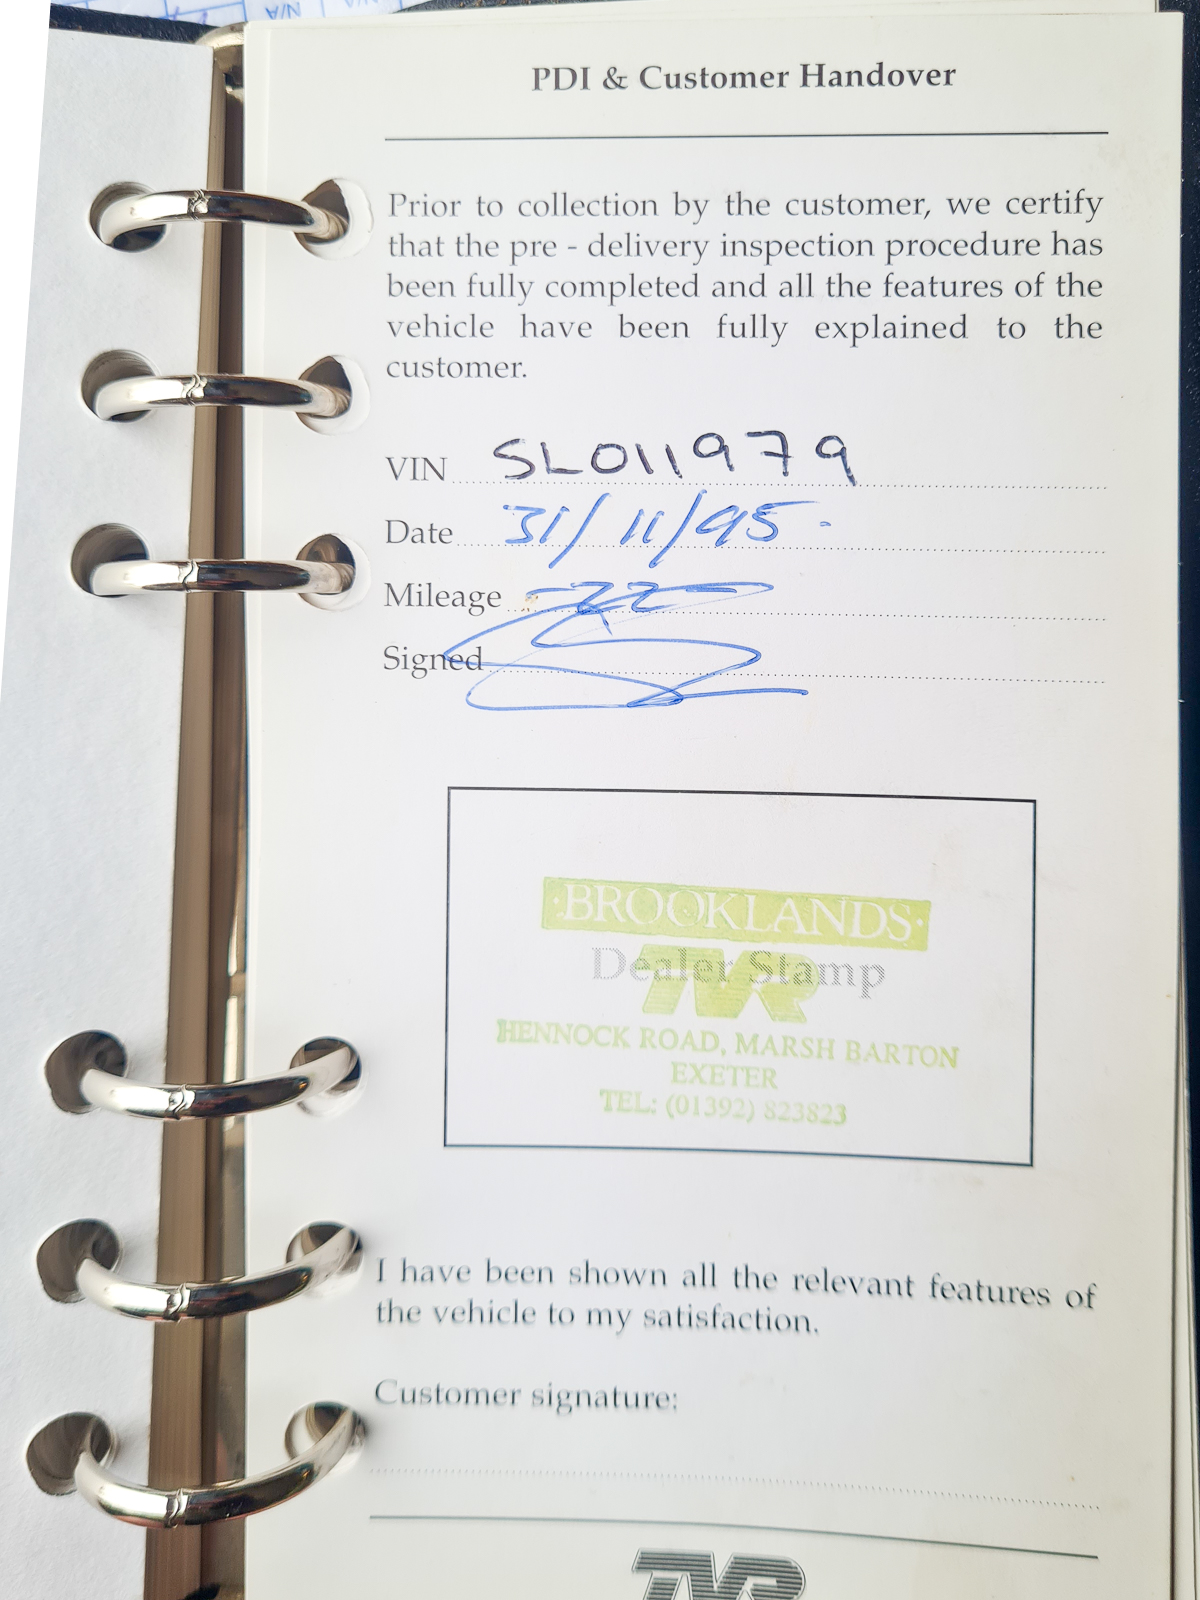 N/A N/A
PDI & Customer Handover
Prior to collection by the customer, we certify
that the pre - delivery inspection procedure has
been fully completed and all the features of the
vehicle have been fully explained to the
customer.
VIN SLO11979
Date 31/11/95.
Mileage - 22 -
Signed
·BROOKLANDS·
Dealer Stamp
TVR
HENNOCK ROAD, MARSH BARTON
EXETER
TEL: (01392) 823823
I have been shown all the relevant features of
the vehicle to my satisfaction.
Customer signature:
TVR